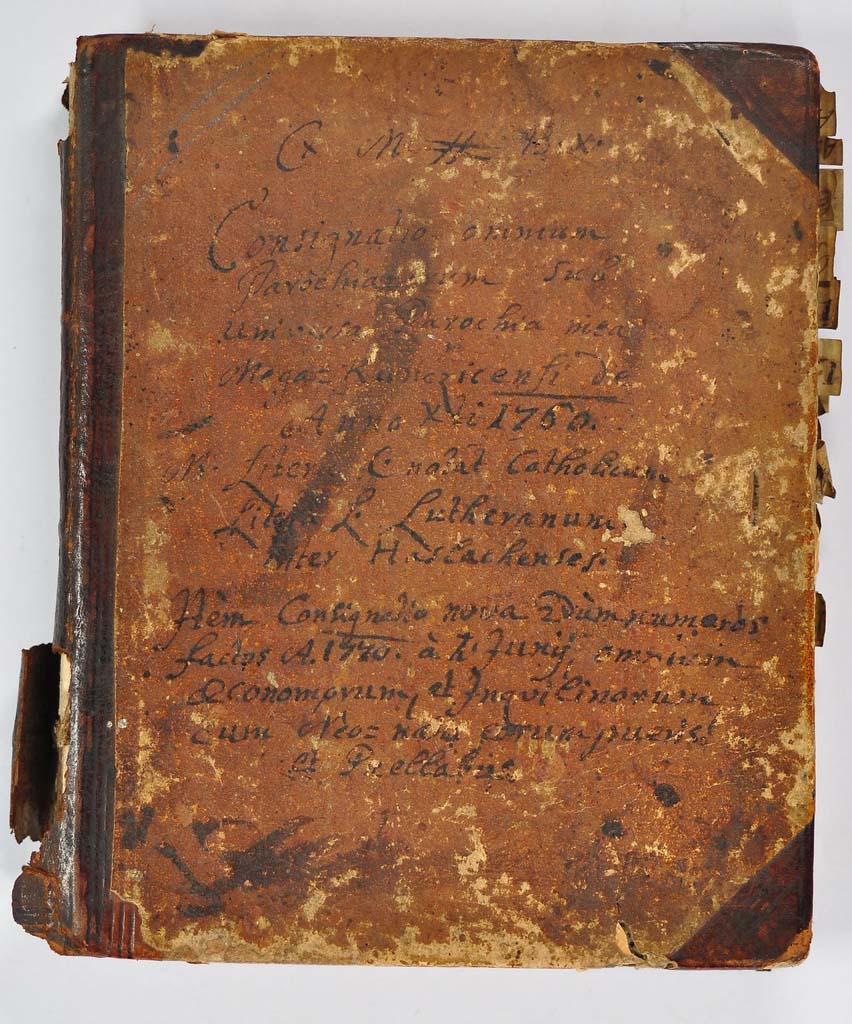 C M B
Consignatio omnium
Parochianorum sub
universa Parochia mea
Megaz Kunczicensi de
Anno Xti 1760.
N. Litera C notat Catholicum
Litera L. Lutheranum
inter Haslachenses.
Itèm Consignatio nova 2dùm numeros
factos A. 1770. à 7. Junij, omnium
Oeconomorum, et Inqvilinorum
cum Neoz natis eorum pueris
et Puellabus